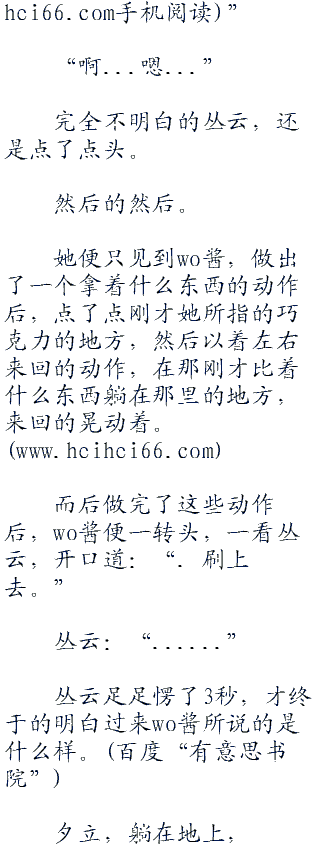 hci66.com手机阅读)”
“啊...嗯...”
完全不明白的丛云，还
是点了点头。
然后的然后。
她便只见到wo酱，做出
了一个拿着什么东西的动作
后，点了点刚才她所指的巧
克力的地方，然后以着左右
来回的动作，在那刚才比着
什么东西躺在那里的地方，
来回的晃动着。
(www.hcihci66.com)
而后做完了这些动作
后，wo酱便一转头，一看丛
云，开口道：“．刷上
去。”
丛云：“......”
丛云足足愣了3秒，才终
于的明白过来wo酱所说的是
什么样。(百度“有意思书
院”)
夕立，躺在地上，